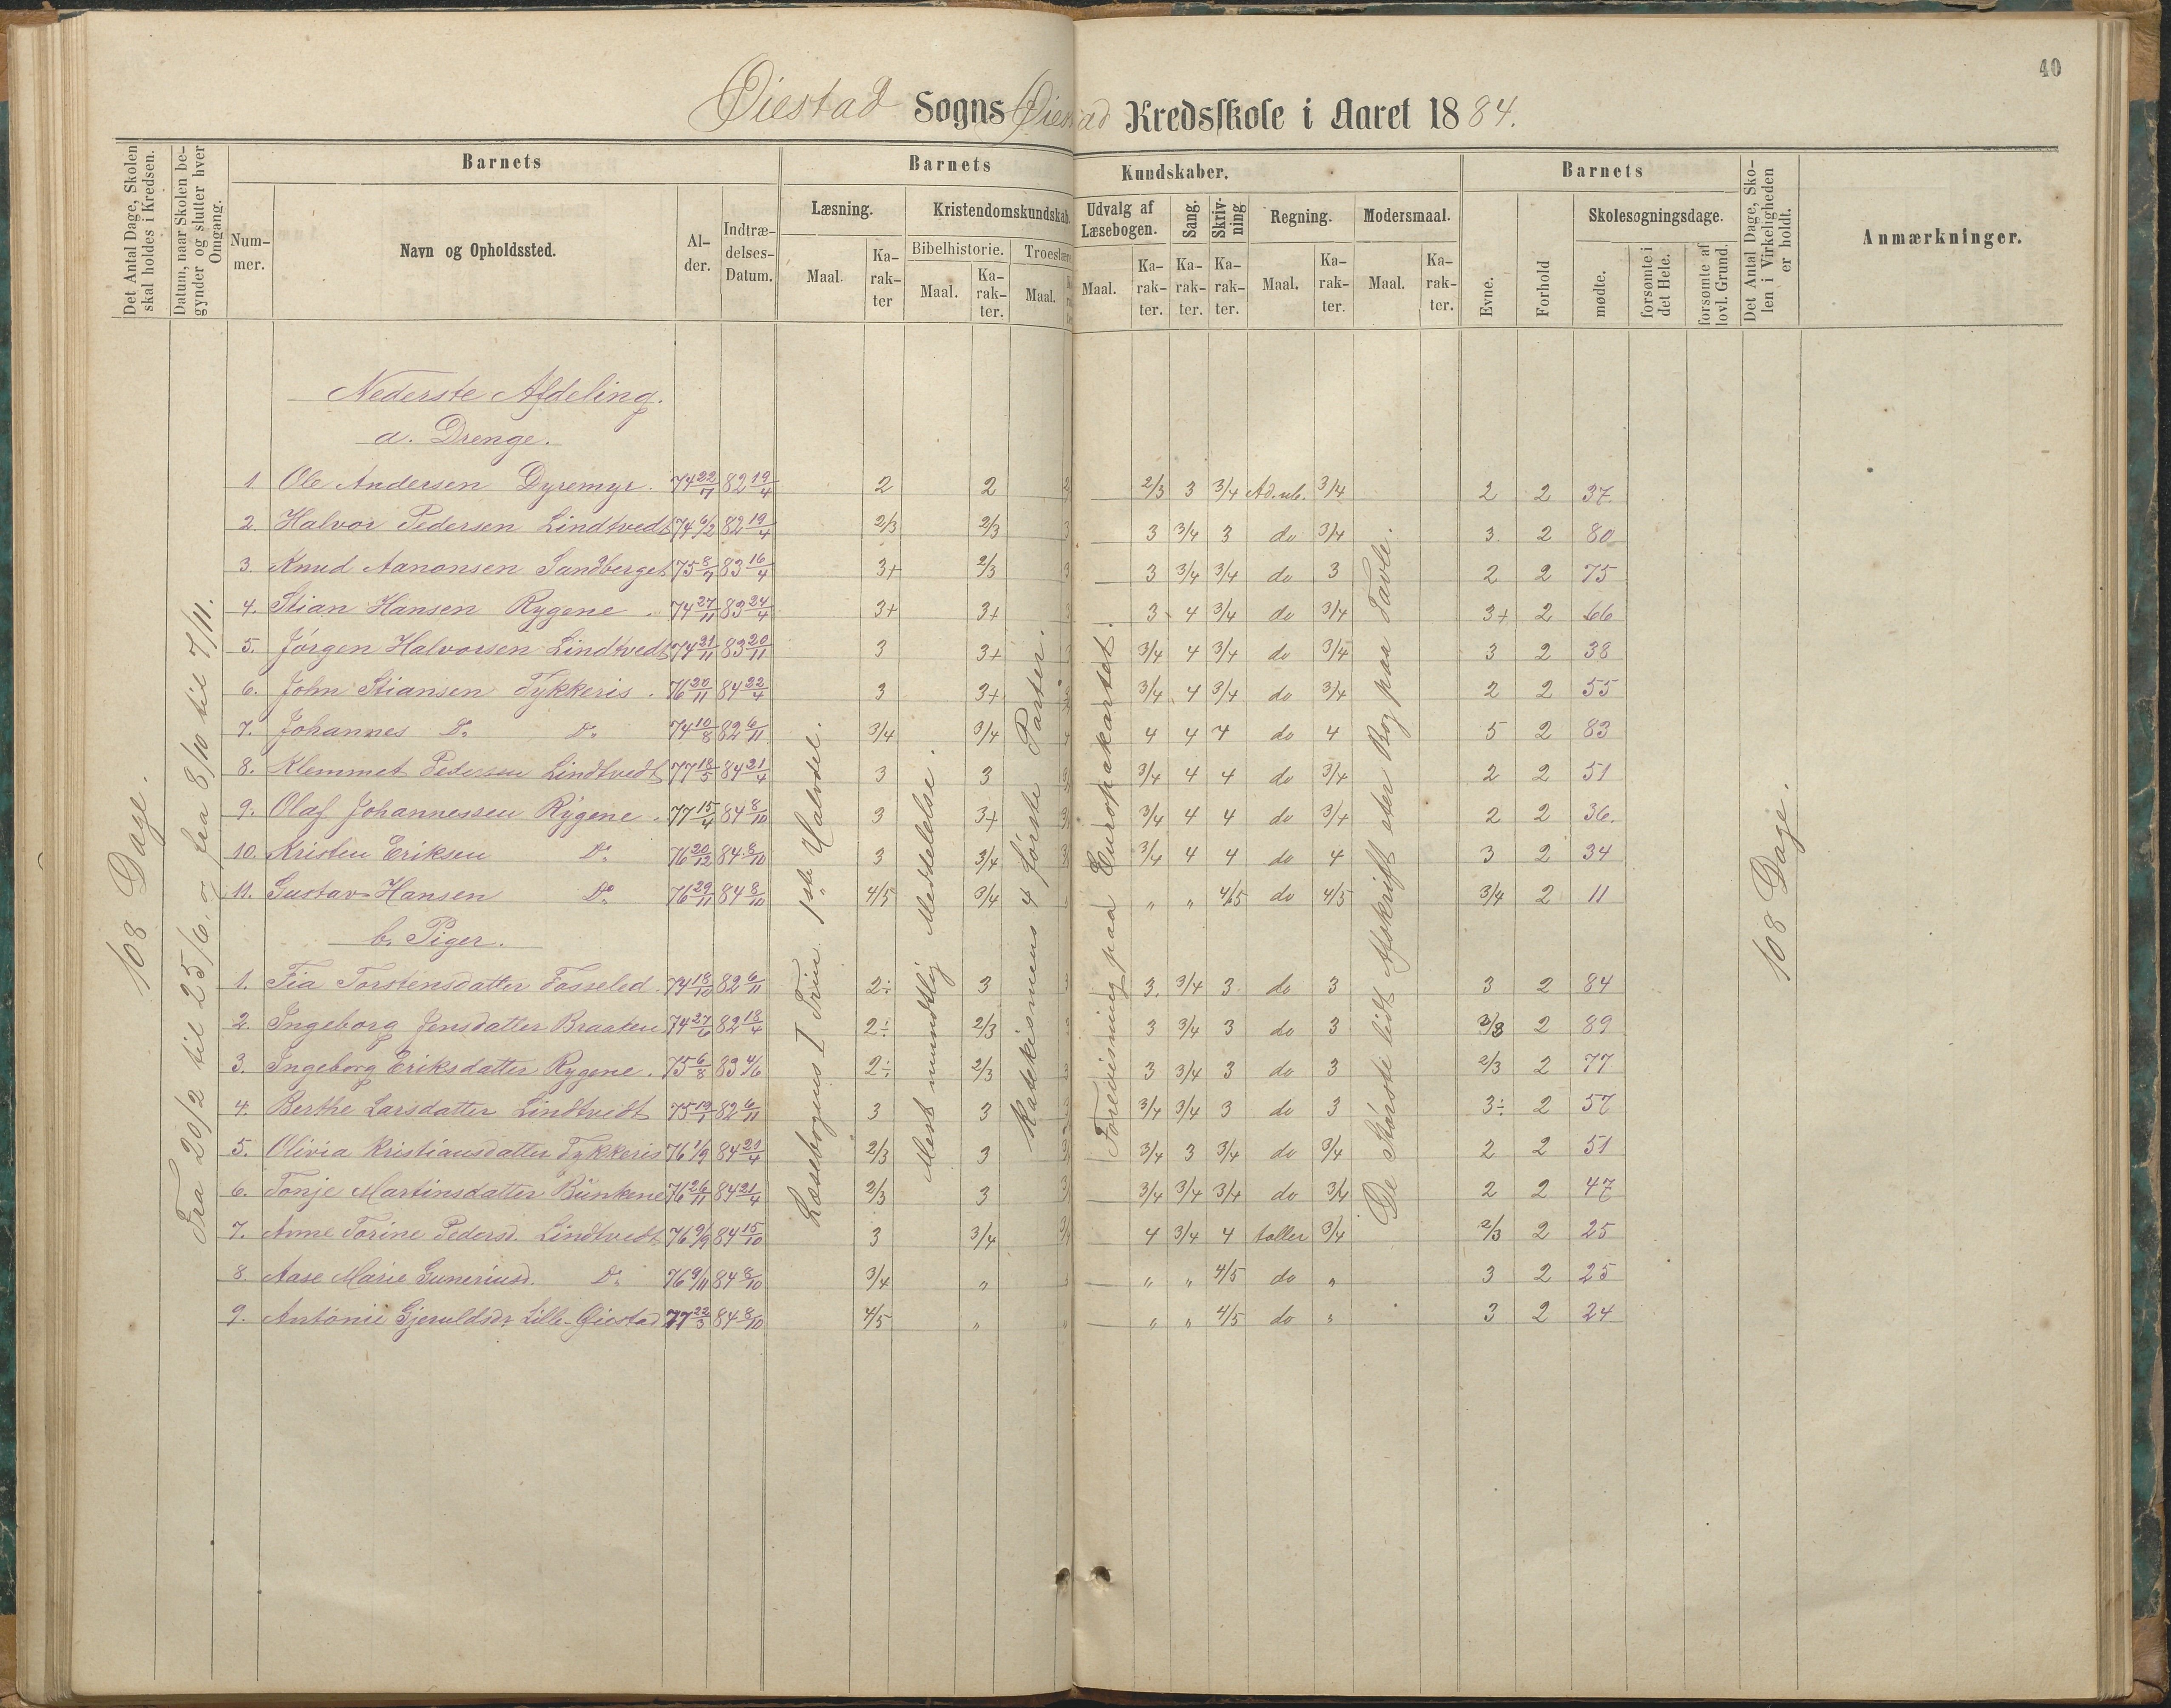 40
Øiestad Sogns Øiestad Kredsskole i Aaret 1884.
Det Antal Dage, Skolen skal holdes i Kredsen.
Datum, naar Skolen begynder og slutter hver Omgang.
Barnets
Num-mer.
Navn og Opholdssted.
Al-der.
Indtræ-delses-Datum.
Barnets Kundskaber.
Læsning.
Maal.
Ka-rak-ter
Kristendomskundskab.
Bibelhistorie.
Maal.
Ka-rak-ter.
Troeslære
Maal.
Udvalg af Læsebogen.
Maal.
Ka-rak-ter.
Sang.
Ka-rak-ter.
Skriv-ning
Ka-rak-ter.
Regning.
Maal.
Ka-rak-ter.
Modersmaal.
Maal.
Ka-rak-ter.
Barnets
Evne.
Forhold
Skolesøgningsdage.
mødte.
forsømte i det Hele.
forsømte af lovl. Grund.
Det Antal Dage, Sko-len i Virkeligheden er holdt.
Anmærkninger.
108 Dage.
Fra 20/2 til 25/6, og fra 8/10 til 7/11.
Læsebogens I Trin 1ste Halvdel.
Mest mundtlig Meddelelse.
Katekismens 4 første Parter.
Forevisning paa Europakartet.
De største lidt Afskrift efter Bog paa Tavle.
108 Dage.
Nederste Afdeling.
a. Drenge.
1. Ole Andersen Dyremyr. 74 22/7 82 19/4 2 2 2/3 3 3/4 Ad. ub. 3/4 2 2 37
2. Halvor Pedersen Lindtvedt 74 6/2 82 19/4 2/3 2/3 3 3/4 3 do 3/4 3 2 80
3. Knud Aanonsen Sandberget 75 8/7 83 16/4 3+ 2/3 3 3/4 3/4 do 3 2 2 75
4. Stian Hansen Rygene. 74 27/11 83 24/4 3+ 3+ 3 4 3/4 do 3/4 3+ 2 66
5. Jørgen Halvorsen Lindtvedt 74 21/11 83 20/11 3 3+ 3/4 4 3/4 do 3/4 3 2 38
6. John Stiansen Tykkeris. 76 20/11 84 22/4 3 3+ 3/4 4 3/4 do 3/4 2 2 55
7. Johannes Do Do 74 10/8 82 6/11 3/4 3/4 4 4 4 do 4 5 2 83
8. Klemmet Pedersen Lindtvedt 77 18/5 84 21/4 3 3 3/4 4 4 do 3/4 2 2 51
9. Olaf Johannessen Rygene. 77 15/4 84 8/10 3 3+ 3/4 4 4 do 3/4 2 2 36.
10. Kristen Eriksen Do 76 20/12 84 8/10 3 3/4 3/4 4 4 do 4 3 2 34
11. Gustav Hansen Do 76 29/11 84 8/10 4/5 3/4 " " 4/5 do 4/5 3/4 2 11
b. Piger.
1. Tia Torstensdatter Fosseled. 74 18/10 82 6/11 2÷ 3 3. 3/4 3 do 3 3 2 84
2. Ingeborg Jensdatter Braaten 74 27/6 82 18/4 2÷ 2/3 3 3/4 3 do 3 2/3 2 89
3. Ingeborg Eriksdatter Rygene. 75 6/8 83 4/6 2÷ 2/3 3 3/4 3 do 3 2/3 2 77
4. Berthe Larsdatter Lindtvedt 75 19/1 82 6/11 3 3 3/4 3/4 3 do 3 3÷ 2 57
5. Olivia Kristiansdatter Tykkeris 76 1/9 84 21/4 2/3 3 3/4 3 3/4 do 3/4 2 2 51
6. Tonje Martinsdatter Bünkene 76 26/11 84 21/4 2/3 3 3/4 3/4 3/4 do 3/4 2 2 47
7. Anne Torine Pedersd. Lindtvedt 76 9/9 84 15/10 3 3/4 4 3/4 4 taller 3/4 2/3 2 25
8. Aase Marie Guneriusd. Do 76 9/11 84 8/10 3/4 " " " 4/5 do " 3 2 25
9. Antonie Gjeruldsdr Lille-Øiestad 77 22/3 84 8/10 4/5 " " " 4/5 do " 3 2 24